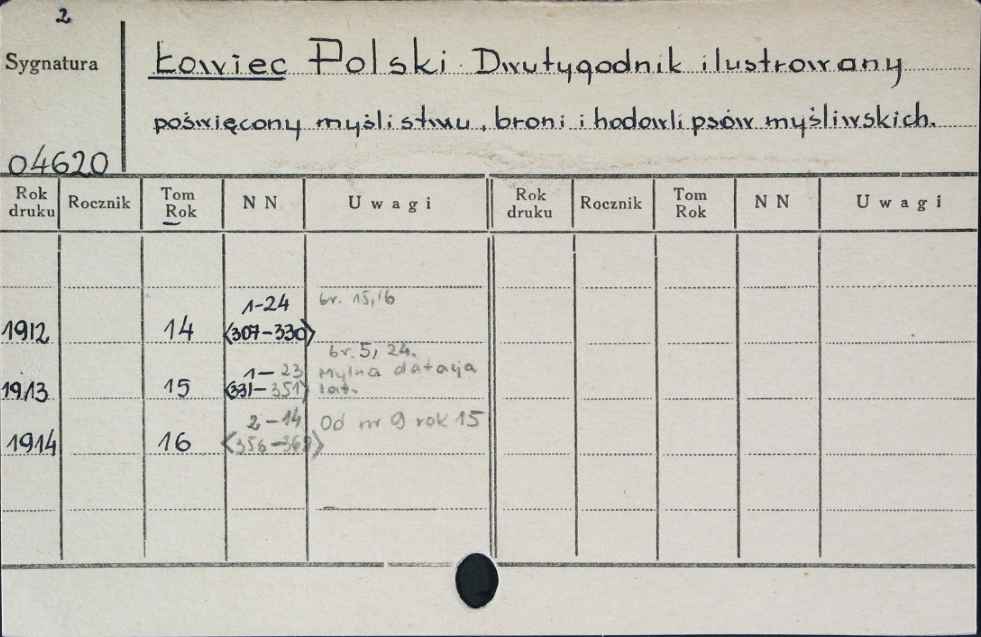 2
Sygnatura
Łowiec Polski Dwutygodnik ilustrowany
poświęcony myślistwu, broni i hodowli psów myśliwskich.
04620
Rok druku Rocznik Tom Rok NN Uwagi Rok druku Rocznik Tom Rok NN Uwagi
1-24 br. 15, 16
1912 14 <307-330>
br. 5, 24.
1-23 Mylna datacja
1913 15 <331-351> lat.
2-14 Od nr 9 rok 15
1914 16 <356-368>